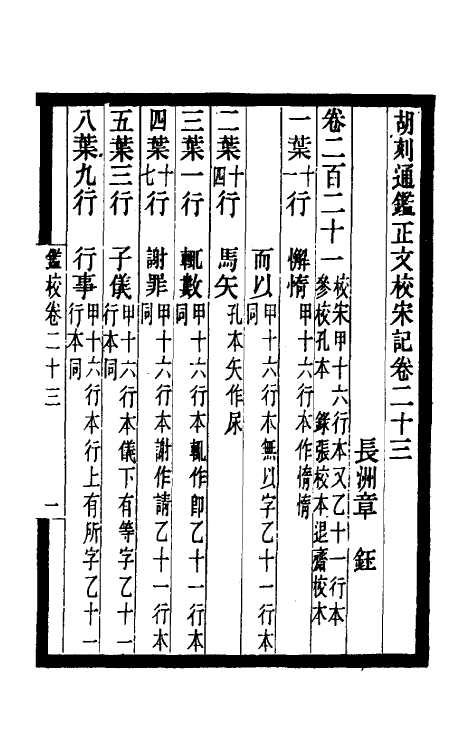 胡刻通鑑正文校宋記卷二十三
長洲章 鈺
卷二百二十一 校宋甲十六行本又乙十一行本
參校孔本 錄張校本退齋校本
一葉十一行 懈惰甲十六行本作惰惰
而以甲十六行本無以字乙十一行本同
二葉十四行 馬矢孔本矢作屎
三葉一行 輒數甲十六行本輒作卽乙十一行本同
四葉十七行 謝罪甲十六行本謝作請乙十一行本同
五葉三行 子儀甲十六行本儀下有等字乙十一行本同
八葉九行 行事甲十六行本行上有所字乙十一行本同
鑑校卷二十三 一